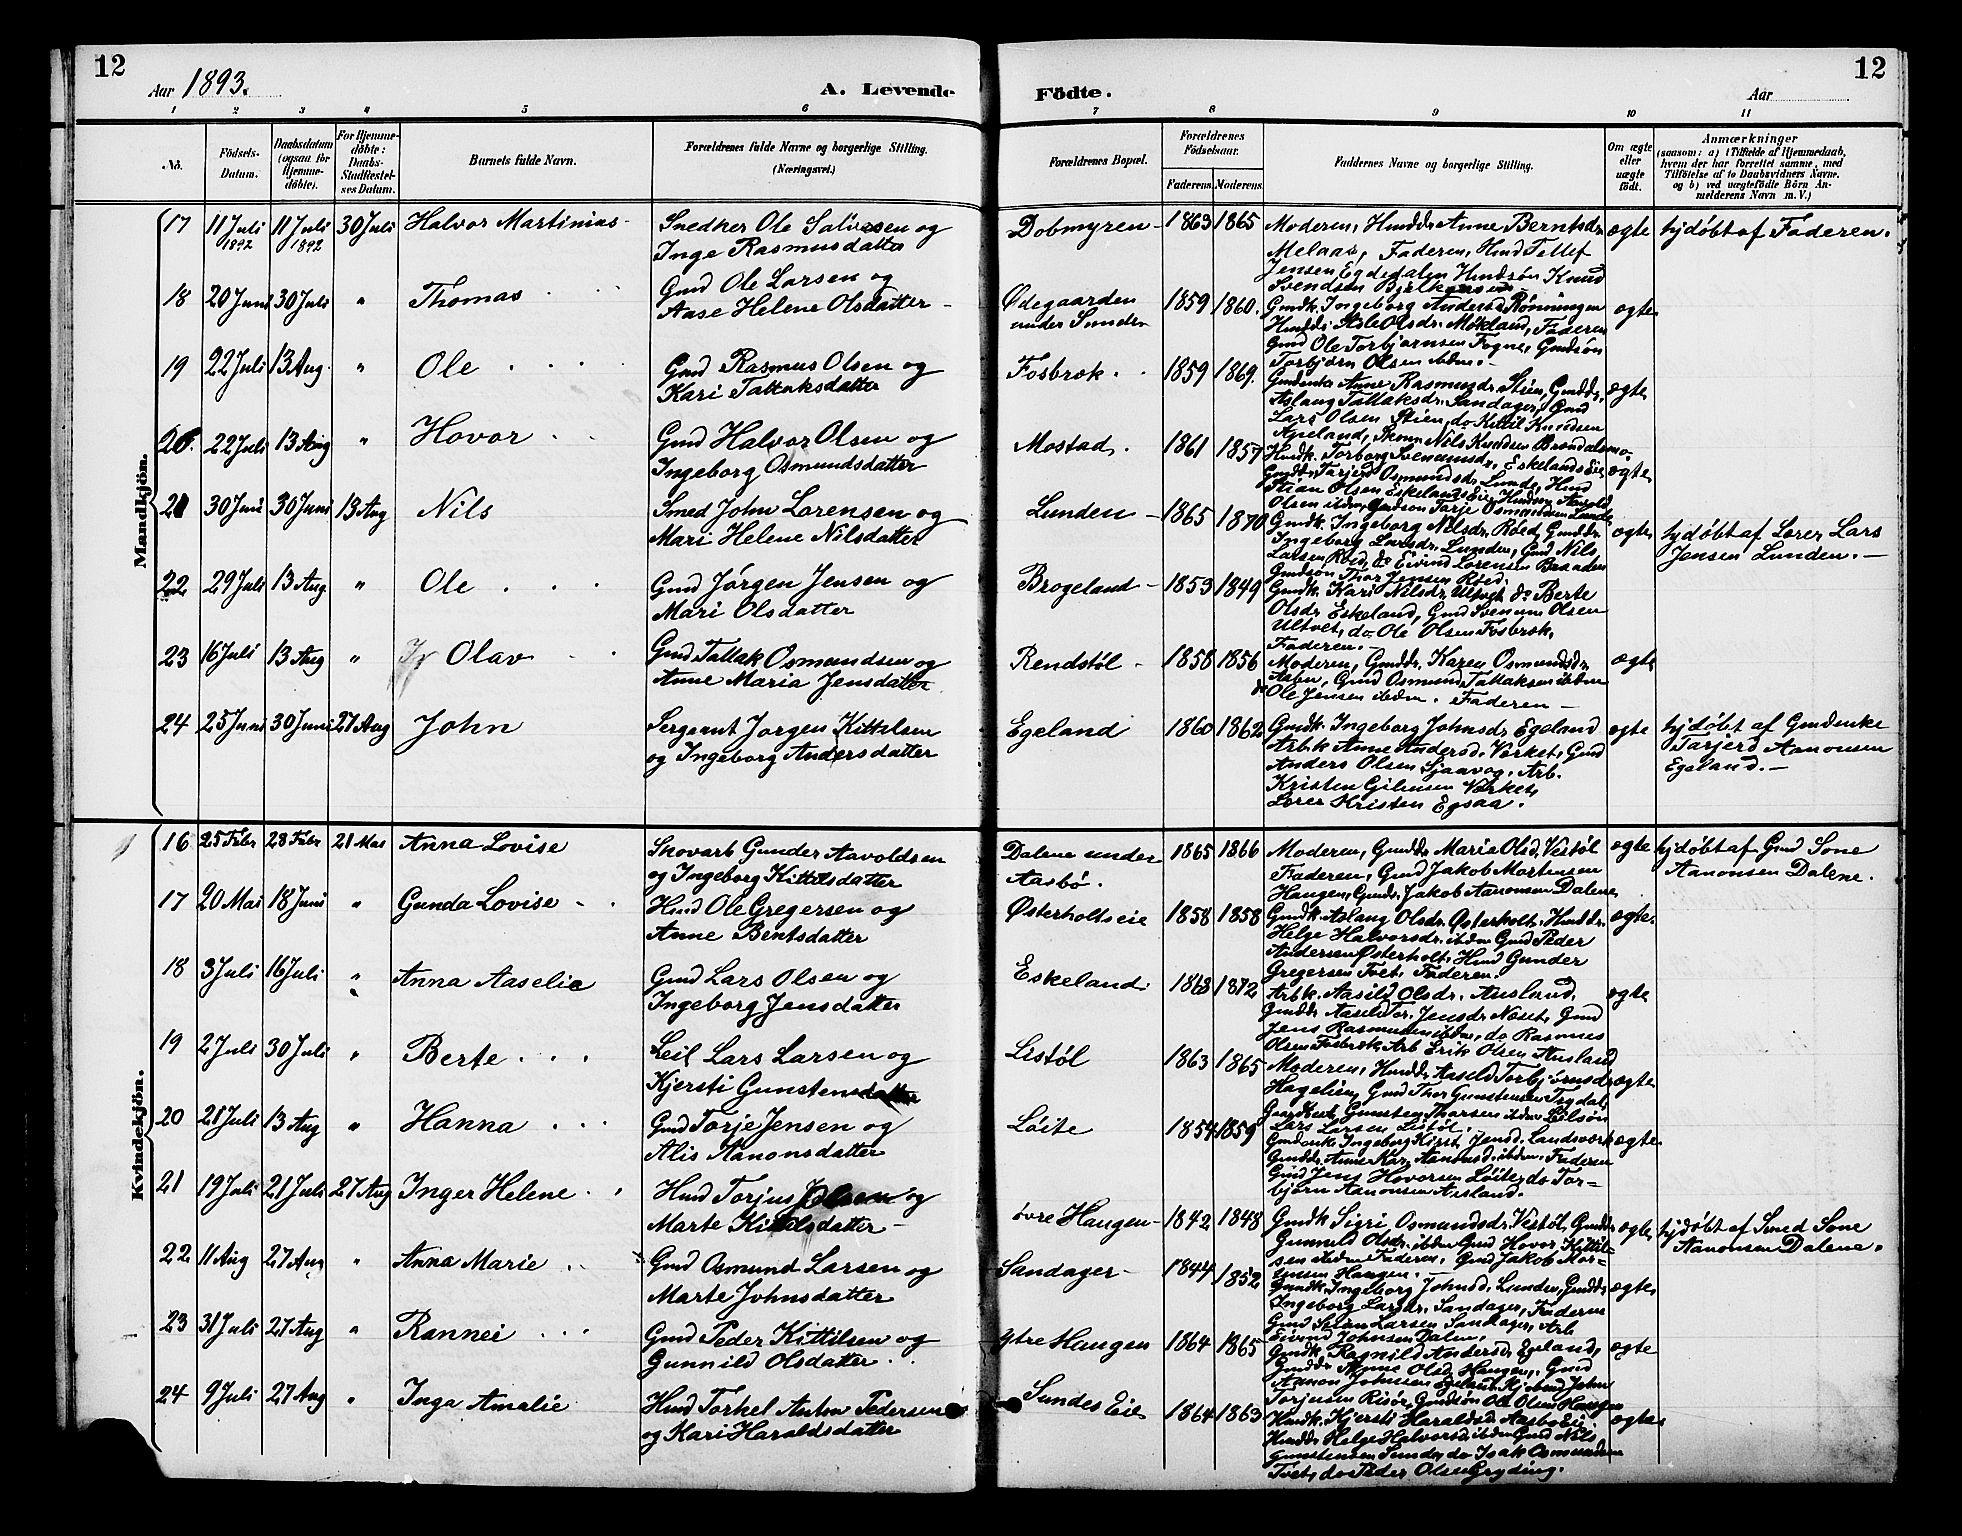 12
Aar 1893.
A. Levende
Födte.
Aar
12
1 2 3 4 5 6 7 8 9 10 11
No.
Födsels-Datum.
Daabsdatum (ogsaa for Hjemme-döbte).
For Hjemme-döbte: Daabs-Stadfæstel-ses Datum.
Barnets fulde Navn.
Forældrenes fulde Navne og borgerlige Stilling. (Næringsvei.)
Forældrenes Bopæl.
Forældrenes Födselsaar.
Faderens. Moderens.
Faddernes Navne og borgerlige Stilling.
Om ægte eller uægte födt.
Anmærkninger
(saasom: a) i Tilfælde af Hjemmedaab, hvem der har forrettet samme, med Tilföielse af to Daabsvidners Navne. og b) ved uægtefödte Börn An-melderens Navn m. V.)
Mandkjön.
17 11 Juli 1892 11 Juli 1892 30 Juli Halvor Martinias Snedker Ole Salvesen og
Inge Rasmusdatter
Dobmyren 1863 1865 Moderen, Husdtr. Anne Berntsdr
Melaas, Faderen, Husd Tellef
Jensen Egdedalen Husdsøn Knud
Svendsen
ægte hjdøbt af Faderen.
18 20 Juni 30 Juli " Thomas Gmd Ole Larsen og
Aase Helene Olsdatter
Ødegaarden
under Sunde
1859 1860. Gmdk. Ingeborg Andersd. Rönningen
Olsdr. Mökland, Faderen
Gmd Ole Torbjørnsen Fogne, Gmdsön
Torbjörn Olsen ibdm.
ægte
19 22 Juli 13 Aug. " Ole Gmd Rasmus Olsen og
Kari Tallaksdatter
Fosbræk 1859 1869. Gmdenke Anne Rasmusdr. Stien, Gmddr.
Aslaug Tallaksdr. Sandager, Gmd
Lars Olsen Stien, do Kittil Knudsen
Apeland, Nils Knudsen
ægte
20. 22 Juli 13 Aug " Hovor Gmd Halvor Olsen og
Ingeborg Osmundsdatter
Mostad. 1861 1857 Husdk. Torborg Eskelandseie
Gmddr. Osmundsdr. Lunde, Husd
Stian Olsen Eskelandseie
Olsen ibdm, Gmdsøn Tarje Osmundsen Lunde
ægte
21 30 Juni 30 Juni 13 Aug Nils Smed John Lorensen og
Mari Helene Nilsdatter
Lunden 1865 1870 Gmdk. Ingeborg Nilsdr. Röed, Gmddr.
Ingeborg Larsdr. Lunden, Gmd Nils
Larsen Röed, do Eivind Lorensen
Gmdsön Thor Jensen Röed.
ægte hjdøbt af Lærer Lars
Jensen Lunden.
22 29 Juli 13 Aug. " Ole Gmd Jørgen Jensen og
Mari Olsdatter
Brogeland 1853 1849 Gmdk. Kari Nilsdr. Ultvet, do Berte
Olsdr. Eskeland, Gmd Olsen
Ultvet, do. Ole Olsen Fosbræk,
Faderen.
23 16 Juli 13 Aug " Olav Gmd Tallak Osmundsen og
Anne Maria Jensdatter.
Rendstöl 1858 1856 Moderen, Gmddr. Karen Osmundsdr.
Gmd Osmund Tallaksen ibdm
do Ole Jensen ibdm. Faderen
ægte
24 25 Juni 30 Juni 27 Aug John Sergeant Jørgen Kittilsen
og Ingeborg Andersdatter
Egeland 1860 1862 Gmdk. Ingeborg Johnsdr. Egeland
Arb.k Anne Andersd. Værket, Gmd
Anders Olsen Sjaavog. Arb.
Kristen Værket,
Lærer Kristen Egsaa.
ægte hjdøbt af Gmdenke
Tarjerd Aanonsen
Egeland.
Kvindekjön.
16 25 Febr 28 Febr 21 Mai Anna Lovise Skovarb Gunder Aavoldsen
og Ingeborg Kittilsdatter
Dalene under
Aasbö.
1865 1866 Moderen, Gmddr Marie Olsd. Vestöl
Faderen, Gmd Jakob Mortensen
Haugen, Gmds. Jakob Aanonsen Dalene
ægte hjdøbt af Gmd Sone
Aanonsen Dalene.
17 20 Mai 18 Juni " Gunda Lovise Husd Ole Gregersen og
Anne Bentsdatter
Østerholtseie 1858 1858 Gmdk. Aslaug Olsdr. Østerholt, Husddr.
Helge Halvorsdr. ibdm Gmd Peder
Andersen Østerholt, Husd Gunder
Gregersen Tvet, Faderen.
ægte.
18 3 Juli 16 Juli " Anna Aaselie Gmd Lars Olsen og
Ingeborg Jensdatter
Eskeland 1863 1872 Arbk. Aasild Olsdr. Ausland,
Gmddr. Jensdr. Næset, Gmd
Jens Rasmussen ibdm, do Rasmus
Olsen Fosbræk, Arb Erik Olsen Ausland
ægte
19 2 Juli 30 Juli " Berte Leil Lars Larsen og
Kjersti Gunstensdatter
Listöl 1863 1865 Moderen, Husddr. Aaseld Torbjörnsdr.
Gmd Thor Gunstensen Trydal,
Gunsten Thorsen ibdm Leilsön
Lars Larsen Listöl.
ægte
20 21 Juli 13 Aug " Hanna Gmd Torje Jensen og
Alis Aanonsdatter
Löite 1854 1859 Gmdenke Ingeborg Kirst. Jensd. Landsværk
Gmddr. Anne Kar. Aanonsd. ibdm. Faderen
Gmd Jens Hovorsen Löite, do Tor-
björn Aanonsen Ausland.
ægte.
21 19 Juli 21 Juli 27 Aug Inger Helene Husd Torjus og
Marte Kittilsdatter
övre Haugen 1842 1848 Gmdk Sigri Osmundsdr. Vestöl, Gmddr.
Gunnild Olsdr. ibdm Gmd Hovor Kittil-
sen ibdm Faderen, Gmd Jakob Mor-
tensen Haugen.
ægte hjdøbt af Smed Sone
Aanonsen Dalene.
22 11 Aug 27 Aug " Anna Marie Gmd Osmund Larsen og
Marte Johnsdatter
Sandager 1844 1852 Gmdk. Ingeborg Johnsd. Lunden, Gmddr.
Ingeborg Larsdr. Sandager, Faderen
Gmd Larsen Sandager, Arb
Eivind Johnsen Dalen.
ægte
23 31 Juli 27 Aug " Rannei Gmd Peder Kittilsen og
Gunnild Olsdatter
Ytre Haugen 1864 1865 Gmdk. Ragnild Andersd. Egeland,
Gmddr. Olsd. Haugen, Gmd
Aanon Johnsen Egeland, John
Torjusen Risör, Gmdsön Ole Olsen Haugen
ægte
24 9 Juli 27 Aug " Inga Amalie Husd Torkel Anton Pedersen
og Kari Haraldsdatter
Sundes Eie 1864 1863 Husdk. Kjersti Haraldsd. Aasbö Eie.
Husddr. Helge Halvorsd ibdm Gmd Nils
Gunstensen Sunde, do Isak Osmundsen
Tvet, do Peder Olsen Gryding.
ægte